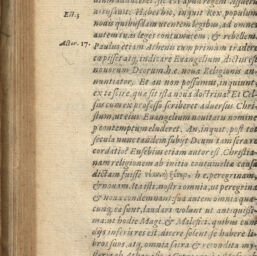 Est. 3
ausant: Habes hic, inquit Rex populum
nouis quibusdam utentem legibus, ad omnes
autem tuas leges contumacem, & rebellem.
Actor. 17.
Paulus etiam Athenis cum primum tradere
capisset atq; indicare Euangelium dictus est
nouorum Deorum, h.e. noua Religionis an
nuntiator. Et an non possumus, inquiunt
ex te scire, quæ sit ista noua doctrina? Et Cel
sus cum ex professo scriberet aduersus Chri
stum, ut eius Euangelium nouitatis nomine
contemptum eluderet, An, inquit, post tot
secula nunc tandem subijt Deum tam sera re
cordatio? Eusebius etiam autor est Christia
nam religionem ab initio contumeliæ causa
dictam fuisse peregrinam,
& nouam. Ita isti, nostra omnia, ut peregrina
& noua condemnant: sua autem omnia quæ
cunq; ea sunt, laudari uolunt ut antiquissi
ma: ut hodie Magi, & Malefici, quibus cum
dijs inferis res est, dicere solent se habere li
bros suos, atq; omnia sacra & recondita my